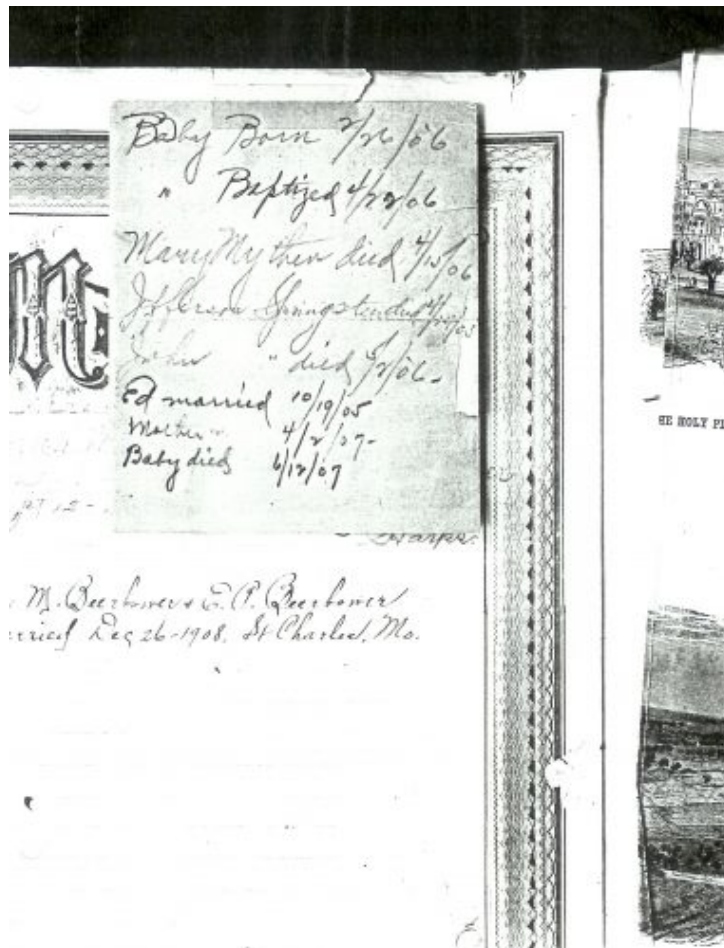 Baby Born 2/26/06
" Baptized 4/22/06
Mary My ther died 4/15/06
Jefferson Livingston died
John " died 4/2/06-
Ed married 10/19/05
Mother " 4/2/07-
Baby died 6/12/07
M
12-
M. Beerbower & E. P. Beerbower
rried Dec 26-1908, St Charles, Mo.
HE HOLY PL